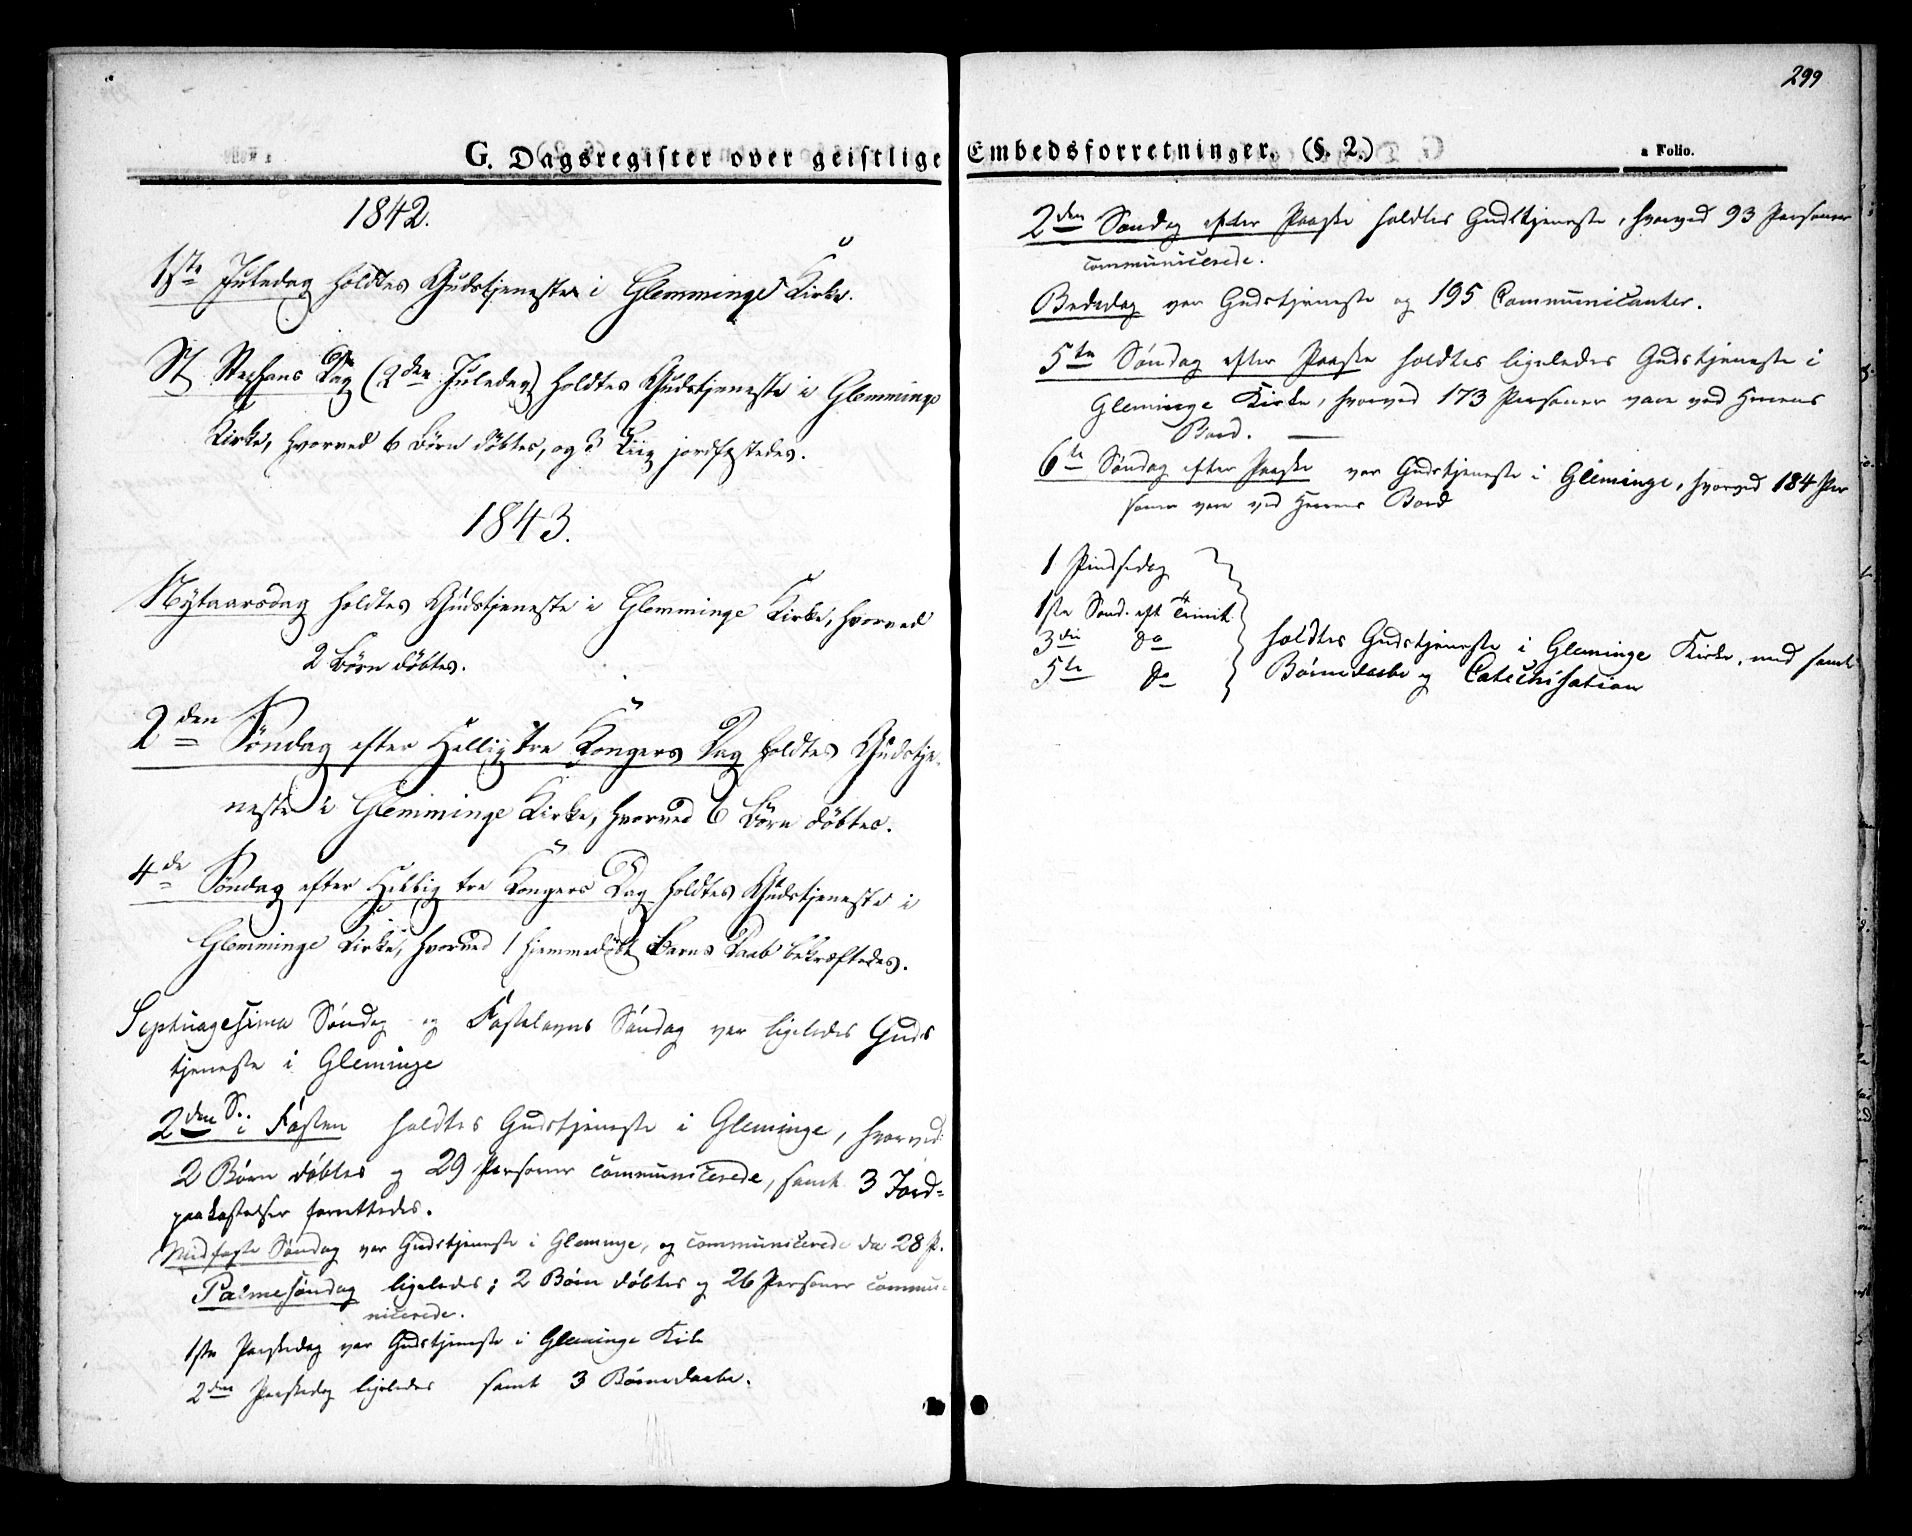 G. Dagsregister over geistlige
1842.
1ste Juledag holdtes Gudstjeneste i Glemminge Kirke.
St Stephans Dag (2den Juledag) holdtes Gudstjeneste i Glemminge
Kirke, hvorved 6 Børn døbtes, og 3 Liig jordfæstedes.
1843.
Nytaarsdag holdtes Gudstjeneste i Glemminge Kirke, hvorved
2 Børn døbtes.
2den Søndag efter Hellig Tre Kongers Dag holdtes Gudstje-
neste i Glemminge Kirke, hvorved 6 Børn døbtes.
4de Søndag efter Hellig tre Kongers Dag holdtes Gudstjeneste i
Glemminge Kirke, hvorved 1 hjemmedøbt Barns Daab bekræftedes.
Septuagesima Søndag og Fastelavns Søndag var ligeledes Guds
tjeneste i Gleminge
2den S. i Fasten holdtes Gudstjeneste i Gleminge, hvorved
2 Børn døbtes og 29 Personer communicerede, samt 3 Jord-
paakastelser forrettedes.
Midfaste Søndag var Gudstjeneste i Gleminge, og communicerede da 28 P.
Palmesøndag ligeledes; 2 Børn døbtes og 26 Personer commu-
nicerede.
1ste Paaskedag var Gudstjeneste i Gleminge Kirke
2den Paaskedag ligeledes samt 3 Børnedaabe.
299
Embedsforretninger. (§. 2.)
a Folio.
2den Søndag efter Paaske holdtes Gudstjeneste, hvorved 93 Personer
communicerede.
Bededag var Gudstjeneste og 195 Communicanter.
5te Søndag efter Paaske holdtes ligeledes Gudstjeneste i
Gleminge Kirke, hvorved 173 Personer vare ved Herrens
Bord.
6te Søndag efter Paaske var Gudstjeneste i Gleminge, hvorved 184 Per
soner vare ved Herrens Bord
1 Pindsedag
1ste Sønd. eft Trinit.
3die do
5te do
holdtes Gudstjeneste i Gleminge Kirke, med samt
Børnedaabe og Catechisation